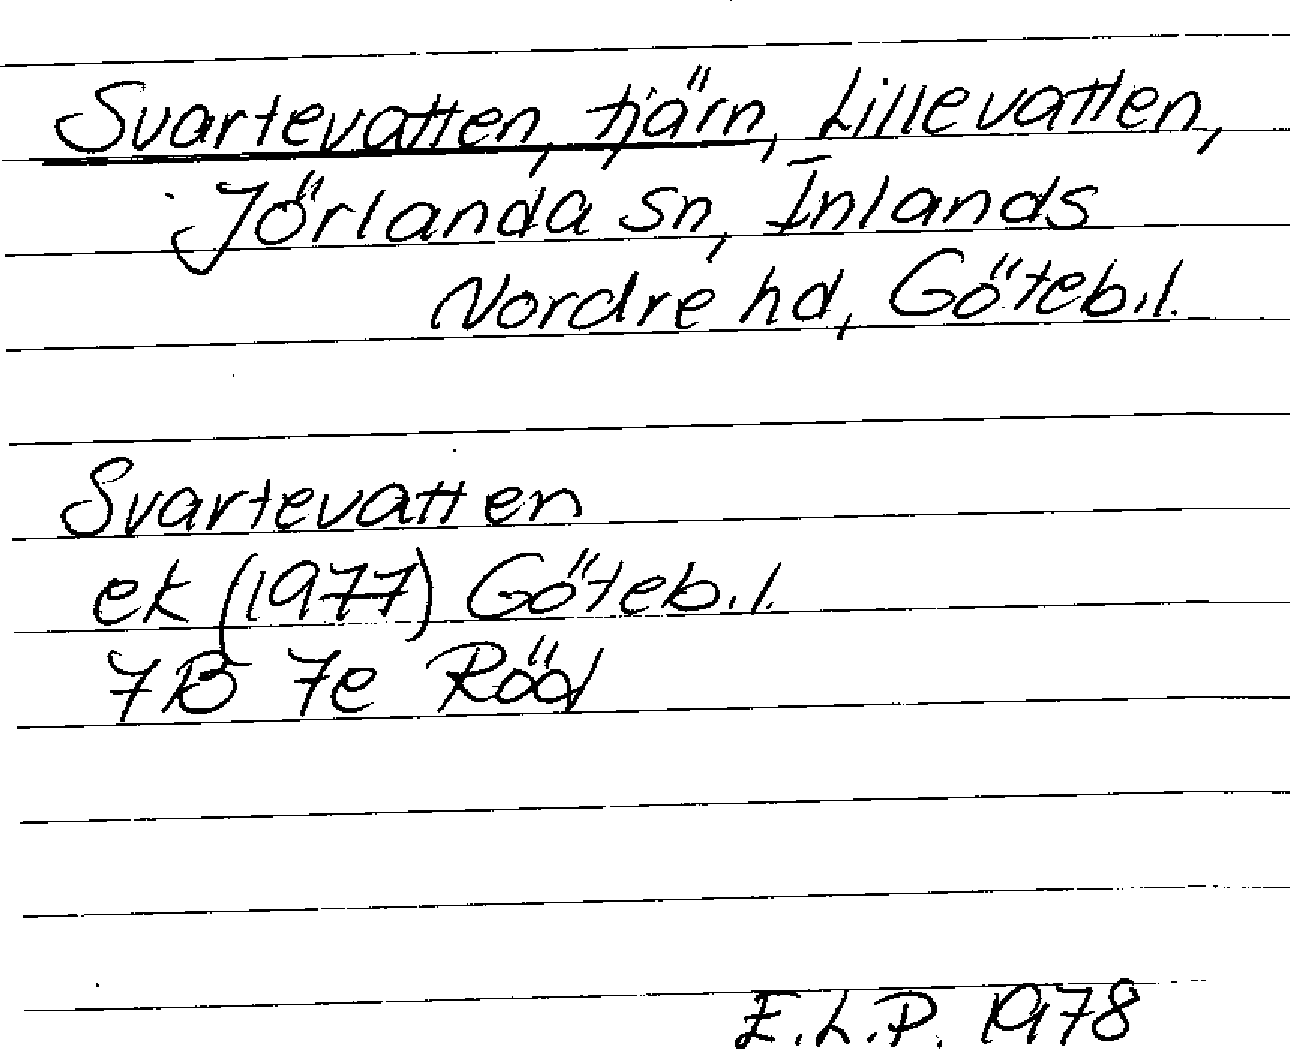 Svartevatten, tjärn, Lillevatten,
Jörlanda sn, Inlands
Nordre hd, Göteb.l.
Svartevatten
ek (1977) Göteb.l.
7B 7e Röd
E.L.P. 1978